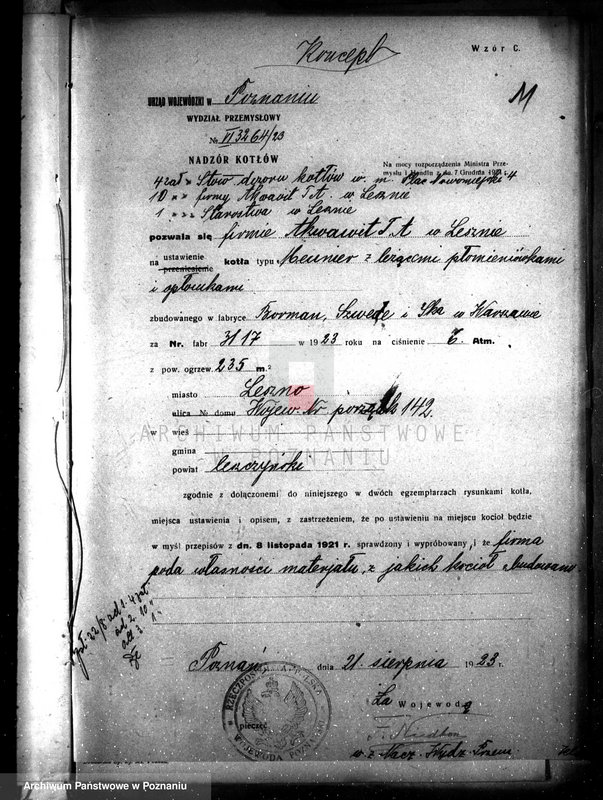 Koncept
Wzór C.
M
URZĄD WOJEWÓDZKI w Poznaniu
WYDZIAŁ PRZEMYSŁOWY
№ VI 3264/23
NADZÓR KOTŁÓW
Na mocy rozporządzenia Ministra Prze-
mysłu i Handlu z dn. 7 Grudnia 1921 r.
4 zał. Stow dozoru kotłów w m. Plac Nowomiejski 4
10 " " firmy Akwawit T.A. w Lesznie
1 " " Starostwa w Lesznie
pozwala się firmie Akwawit T.A w Lesznie
na ustawienie przeniesienie kotła typu Meunier z leżącemi płomieniówkami
i opłomkami
zbudowanego w fabryce Borman, Szwede i Ska w Warszawie
za Nr. fabr 3117 w 1923 roku na ciśnienie Atm.
z pow. ogrzew. 235 m.²
miasto Leszno
ulica № domu Wojew. Nr porządk 142.
w wieś
gmina
powiat leszczyński
ARCHIWUM PAŃSTWOWE
W POZNANIU
zgodnie z dołączonemi do niniejszego w dwóch egzemplarzach rysunkami kotła,
miejsca ustawienia i opisem, z zastrzeżeniem, że po ustawieniu na miejscu kocioł będzie
w myśl przepisów z dn. 8 listopada 1921 r. sprawdzony i wypróbowany, i że firma
poda własności materjału, z jakich kocioł zbudowano
ad 1. 4 zał
ad 2. 10 "
ad 3. 1 "
Poznań dnia 21 sierpnia 1923
RZECZPOSPOLITA POLSKA
WOJEWODA POZNAŃSKI
pieczęć
Za Wojewodę
w. z. Nacz. Wydz. Przem.
Archiwum Państwowe w Poznaniu